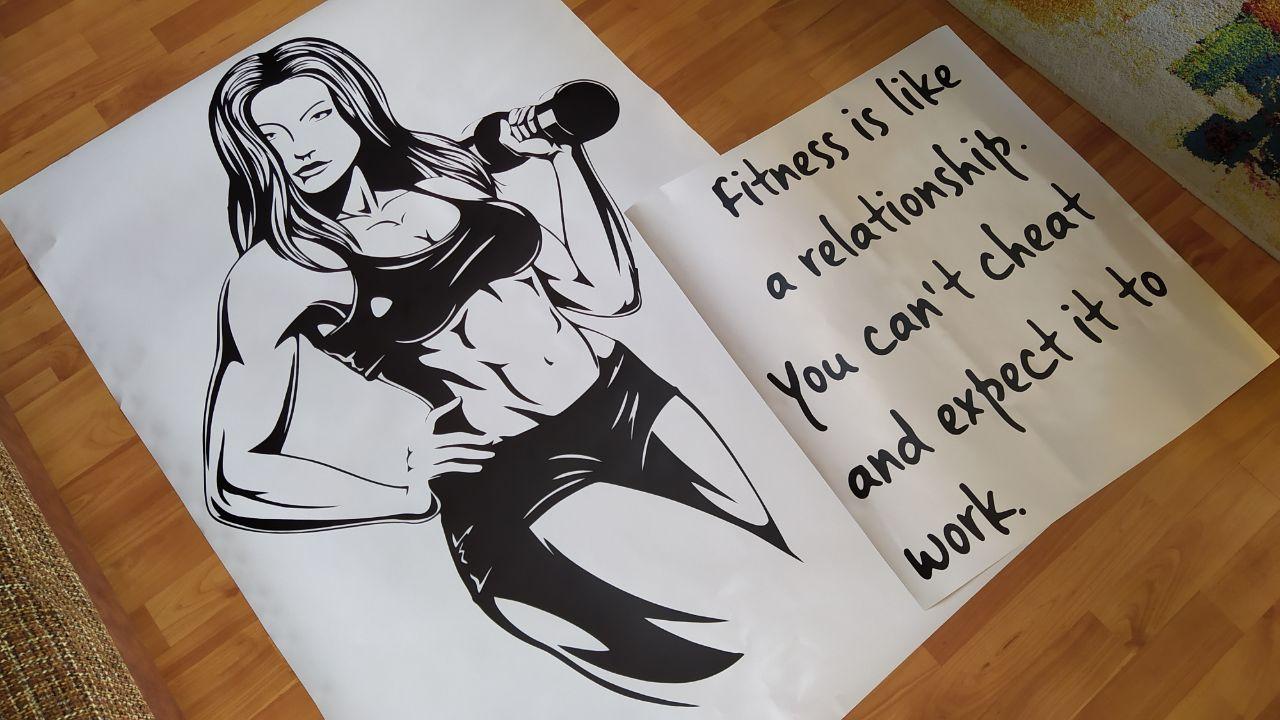 Fitness is like
a relationship.
You can't cheat
and expect it to
work.